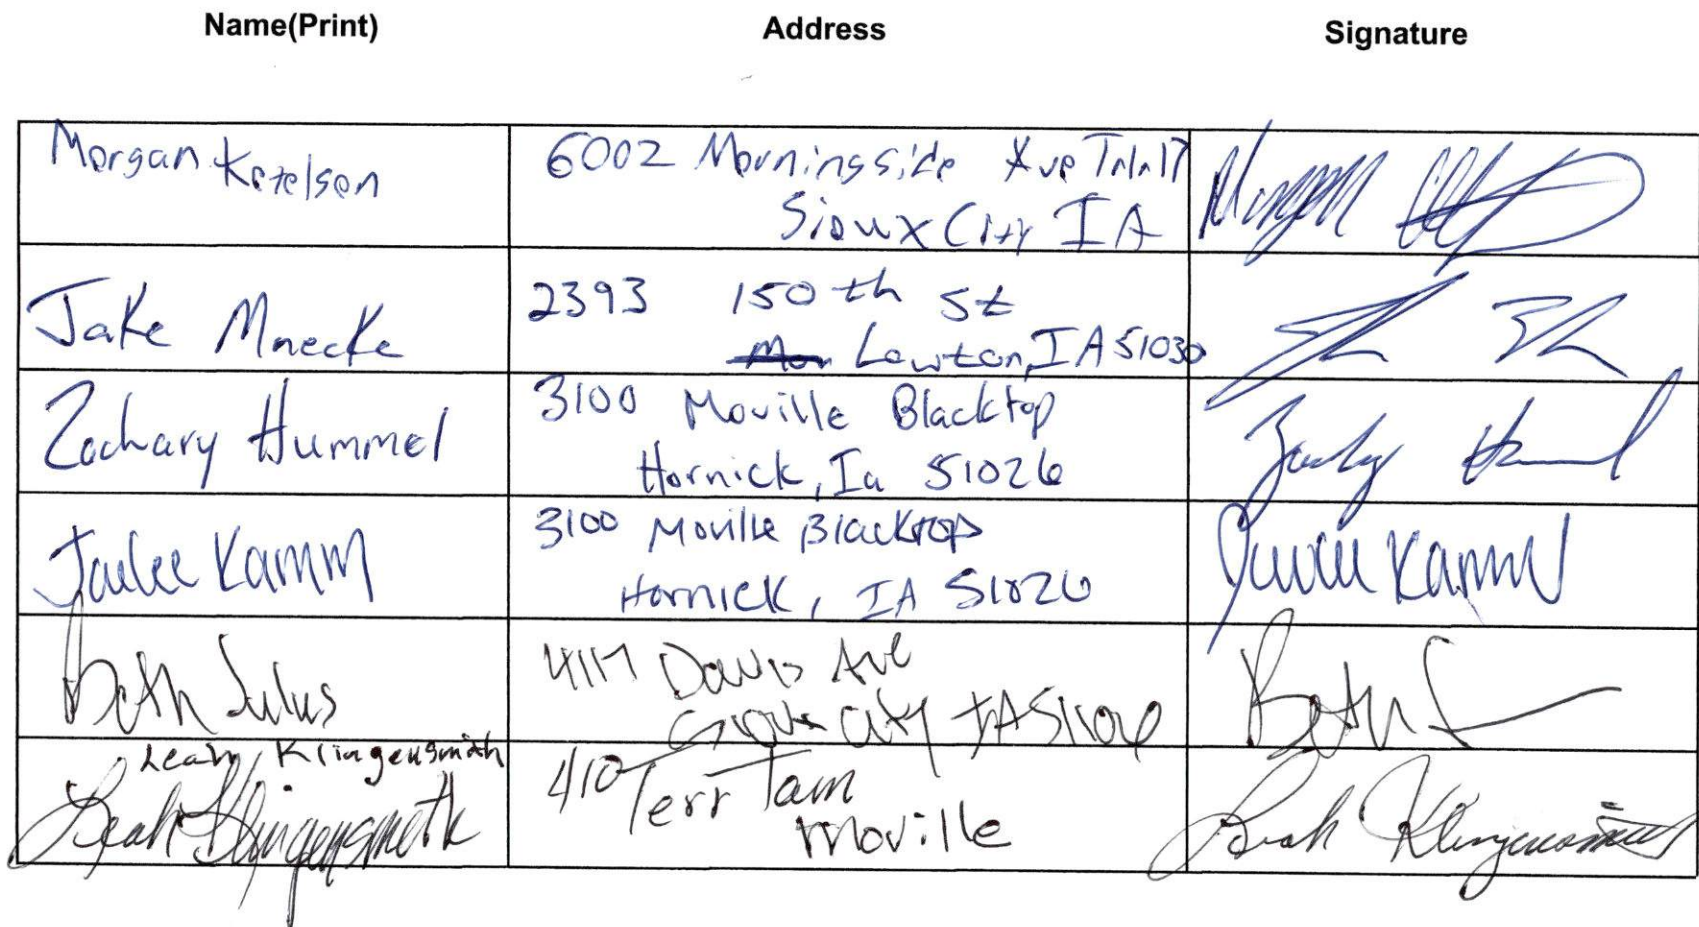 Name(Print) Address Signature
Morgan Ketelsen
6002 Morningside Ave Trlr 17
Sioux City IA
Jake Mnecke
2393 150th St
Lawton, IA 51030
Zachary Hummel
3100 Moville Blacktop
Hornick, Ia 51026
Zachary Hummel
Kamm
3100 Moville Blacktop
Hornick, IA 51026
Kamm
Beth
4117 Davis Ave
Sioux City IA 51106
Beth
Leah Klingensmith
Leah Klingensmith
410 Terr
Moville
Leah Klingensmith